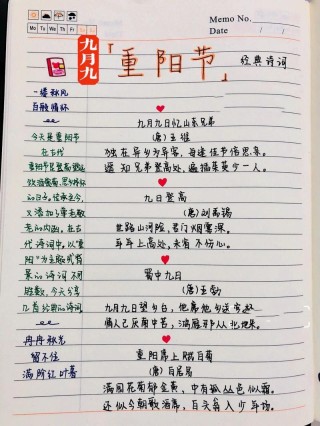 Memo No.
Mo Tu We Th Fr Sa Su
Date / /
九月九
「重阳节」
经典诗词
一缕秋风
百融情怀
今天是重阳节
在古代
重阳节是登高望远
饮酒赏菊、思乡怀亲
的日子。传承至今,
又添加了尊老敬
老的内涵。在古
代诗词中,以"重
阳"为主题或背
景的诗词不
胜数,今天分享
几首经典的诗词
冉冉秋光
留不住
满阶红叶暮
九月九日忆山东兄弟
(唐)王维
独在异乡为异客,每逢佳节倍思亲。
遥知兄弟登高处,遍插茱萸少一人。
九日登高
(唐)刘禹锡
世路山河险,君门烟雾深。
年年上高处,未省不伤心。
蜀中九日
(唐)王勃
九月九日望乡台,他席他乡送客杯。
情人已厌南中苦,鸿雁那从北地来。
重阳席上赋白菊
(唐)白居易
满园花菊郁金黄,中有孤丛色似霜。
还似今朝歌酒席,白头翁入少年场。